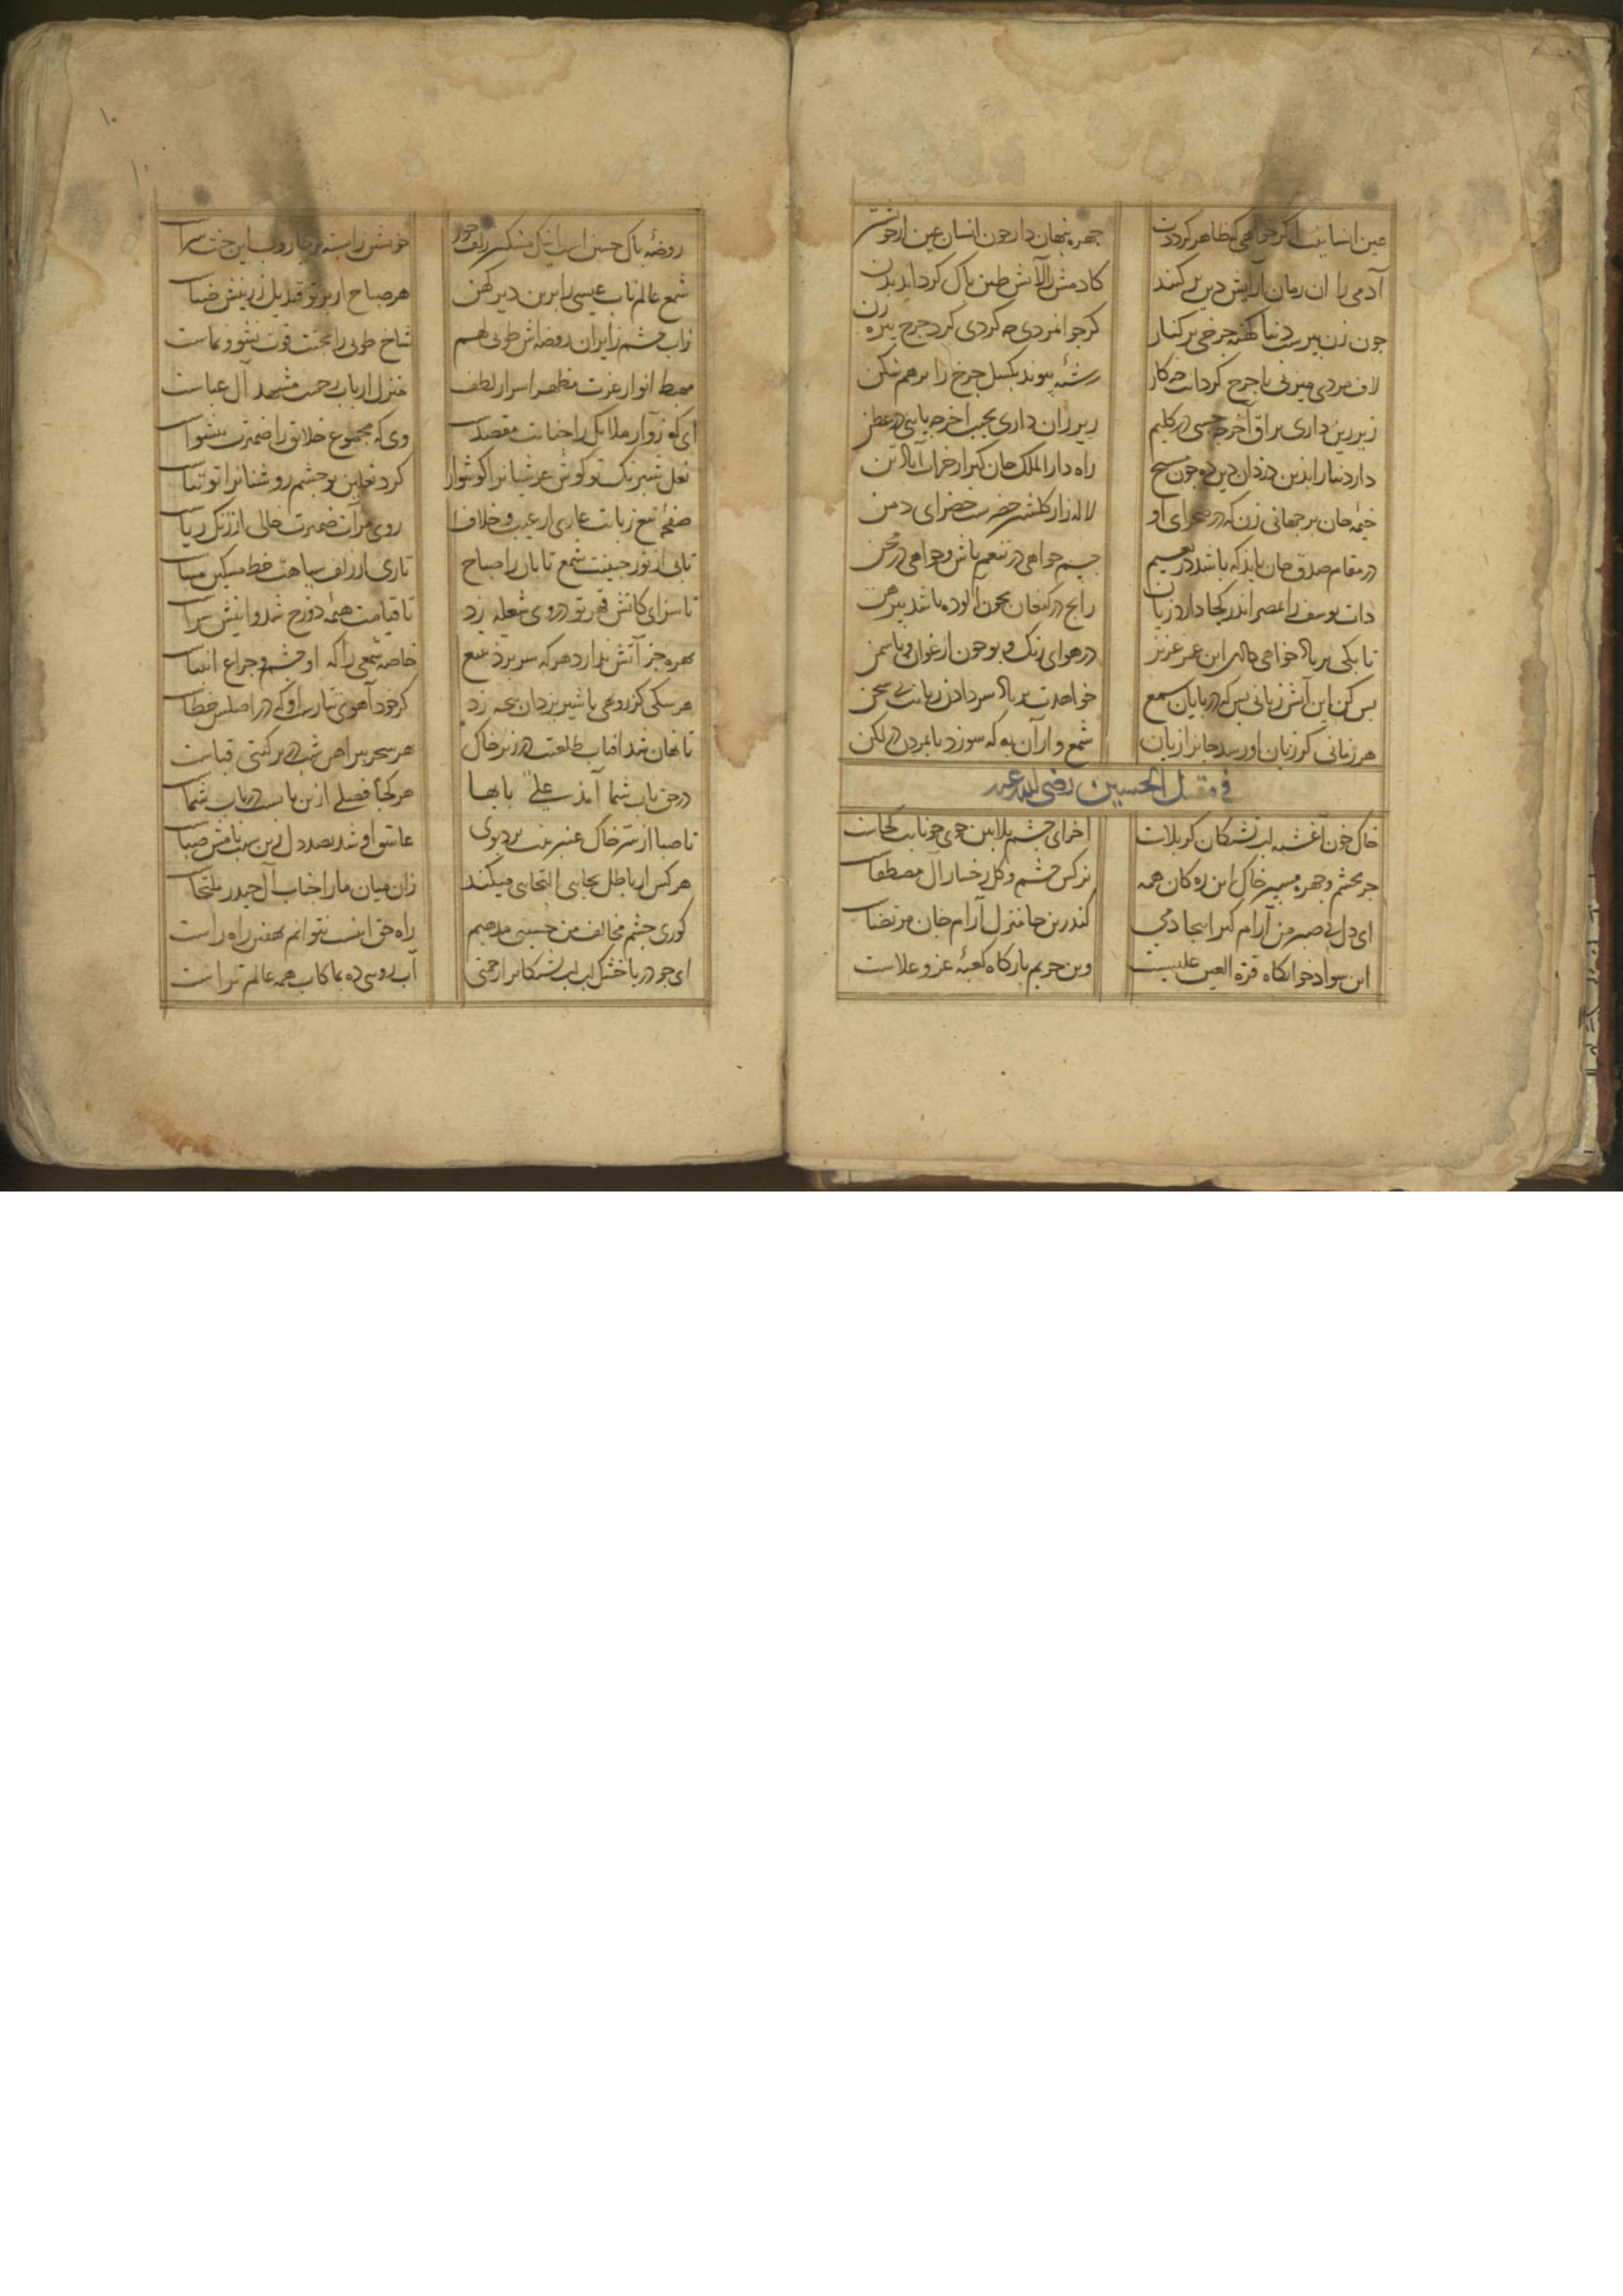 عین انسانیت اگر خواهی که ظاهر گرددت
چهره پنهان دار چون انسان عین از خویشتن
آدمی را آن زمان آرایش دین برکنند
کادمش را ز آلایش طین پاک گرداند بدن
چون زن پیرست دنیا کهنه چرخی بر کنار
گر جوانمردی چه گردی گرد چرخ پیره زن
لاف مردی میزنی با چرخ گردانت چه کار
رشته پیوند بگسل چرخ را برهم شکن
زیر زین داری براق آخر چه خسبی در گلیم
زیر ران داری نجیب آخر چه پایی در عطن
دار دنیا را بدین دزدان دین ده چون مسیح
راه دار الملک جان گیر از خراب آباد تن
خیمه جان بر جهانی زن که در صحرای او
لاله زار گلشن خضرست خضرای دمن
در مقام صدق جان باید که باشد در نعیم
جسم خواهی در تنعم باش و خواهی در محن
ذات یوسف را بمصر اندر کجا دارد زیان
رانج در کنعان بخون آلوده باشد پیرهن
تا بکی بر باد خواهی داد این عمر عزیز
در هوای رنگ و بو چون ارغوان و یاسمن
بس کن این آتش زبانی بس که در پایان شمع
خواهدت بر باد سر دادن زبانت بی سخن
هر زمانی کز زبان آور رسد جانرا زیان
شمع وار آن به که سوزد یا بمردن در لگن
فی مقتل الحسین رضی الله عنه
خاک خون آغشته لب تشنگان کربلاست
آخر ای چشم بلابین جوی خونابت کجاست
جز بچشم و چهره مسپر خاک این ره کان همه
نرگس چشم و گل رخسار آل مصطفاست
ای دل بی صبر من آرام گیر اینجا دمی
کندرین جا منزل آرام جان مرتضاست
این سواد خوابگاه قرة العین علیست
وین حریم بارگاه کعبه عز و علاست
روضه پاک حسین است اینک مشکین زلف حور
خویشتن را بسته بر جاروب این جنت سراست
شمع عالم تاب عیسی را برین دیر کهن
هر صباح از پرتو قندیل زرینش ضیاست
زاب چشم زایران روضه اش طوبی لهم
شاخ طوبی را بجنت قوت نشو و نماست
مهبط انوار عزت مظهر اسرار لطف
منزل ارباب رحمت مشهد آل عباست
ای که زوار ملایک را جنابت مقصدست
وی که مجموع خلایق را ضمیرت پیشواست
نعل شبرنگ تو گوش عرشیانرا گوشوار
گرد نعلین تو چشم روشنانرا توتیاست
صفحه تیغ زبانت عاری از عیب و خلاف
روی مرآت ضمیرت خالی از زنگ ریاست
تابی از نور جبینت شمع تابان را صباح
تاری از زلف سیاهت خط مشکین مساست
ناسزای کاتش قهر تو در وی شعله زد
تا قیامت هیمه دوزخ شد و اینش سزاست
بهره جز آتش ندارد هر که سر برد ز تیغ
خاصه شمعی را که او چشم و چراغ انبیاست
هر سگی کز روبهی با شیر یزدان پنجه زد
گر خود آهوی تتارست او که در اصلش خطاست
تا نهان شد آفتاب طلعتت در زیر خاک
هر سحر پیراهن شب در بر گیتی قباست
در حق باب شما آمد علی بابها
هر کجا فصلی ازین باب است در باب شماست
تا صبا از سر خاک عنبرینت برد بوی
عاشق او شد بصد دل زین سبب نامش صباست
هر کس از باطل بجایی التجایی میکند
زان میان ما را جناب آل حیدر ملتجاست
کوری چشم مخالف من حسینی مذهبم
راه حق اینست نتوانم نهفتن راه راست
ای چو دریا خشک لب لب تشنگانرا رحمتی
آب رویی ده بما کاب همه عالم تراست
۱۰
۱۰